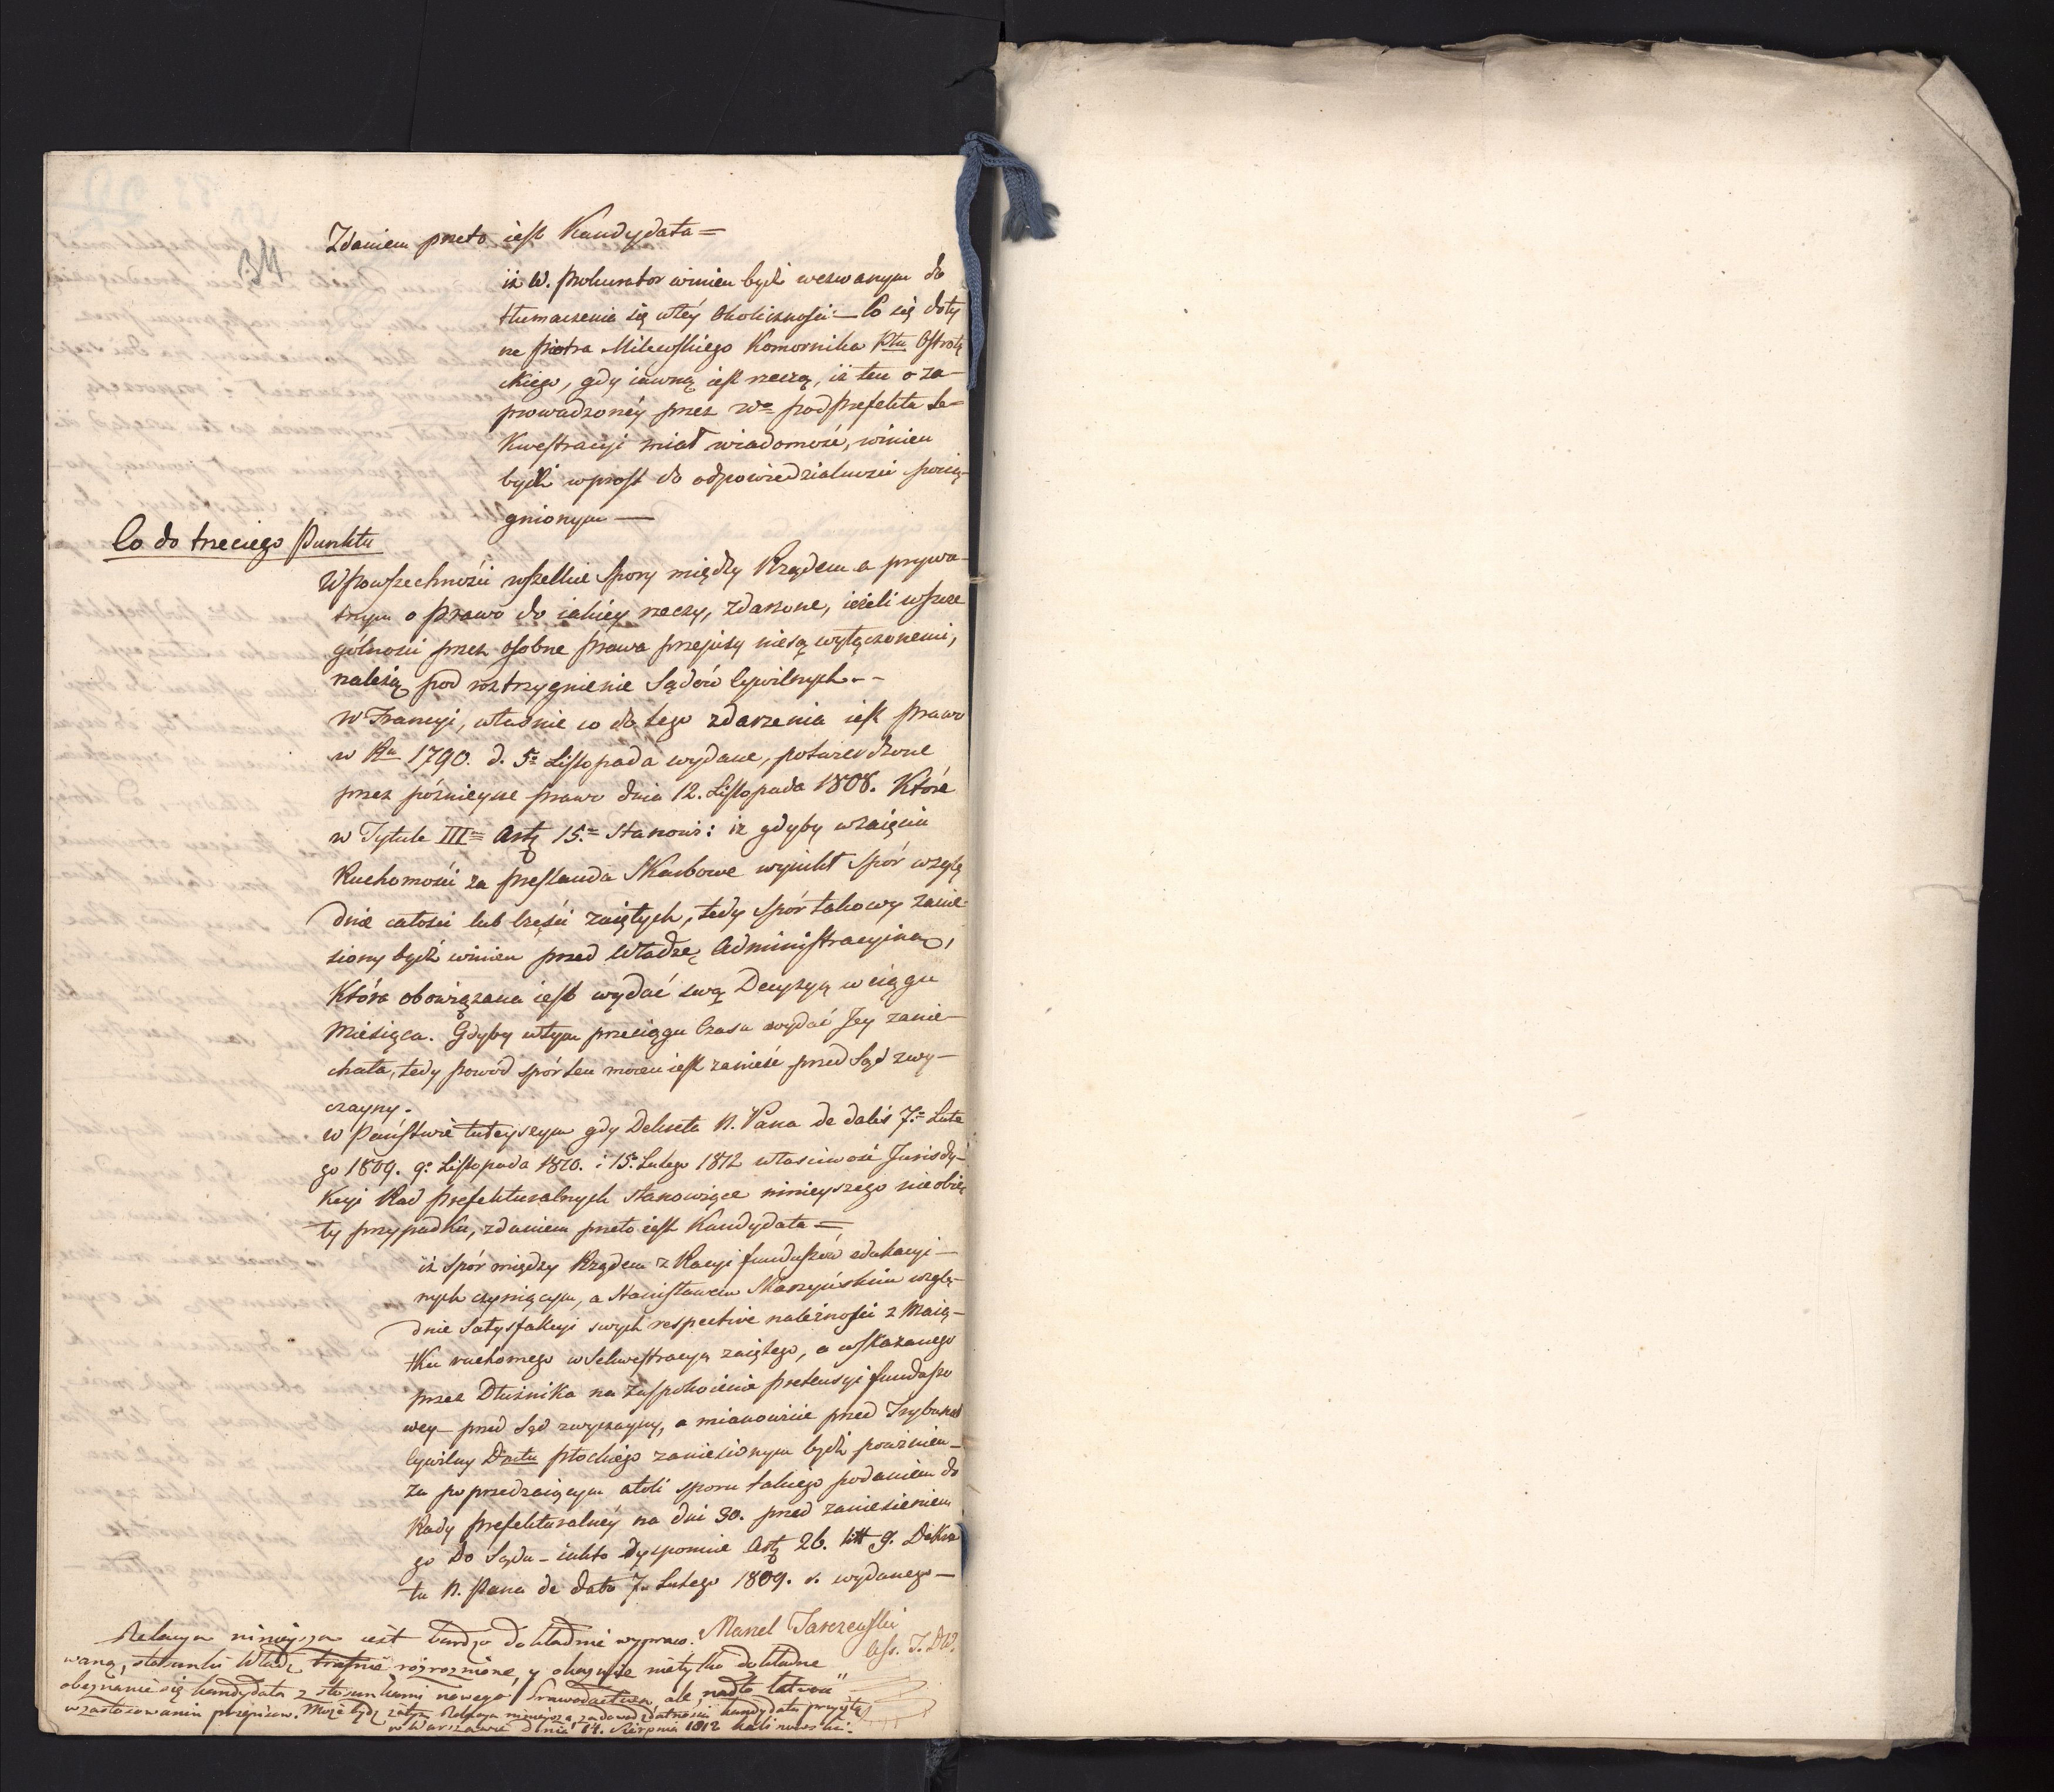 34
Zdaniem przeto iest Kandydata =
iż W. Prokurator winien bydź wezwanym do
tłumaczenia się wtéy Okoliczności — Co się doty
ne Piotra Milewskiego Komornika Ptu Ostrołę
ckiego, gdy iawną iest rzeczą, iż ten o za-
prowadzonéy przez Wo podprefekta Se-
kwestracyi miał wiadomość, winien
bydź wprost do odpowiedzialności pocią-
gnionym —
Co do trzeciego Punktu
Wpowszechności wszelkie spory między Rządem a prywa-
tnym o prawo do iakiey rzeczy, zdarzone, ieżeli wszcze
gólności przez osobne prawa przepisy niesą wyłączonemi,
należą pod roztrzygnienie Sądów Cywilnych. -
w Francyi, właśnie co do tego zdarzenia iest prawo
w Ru 1790. d. 5o Listopada wydane, potwierdzone
przez późnieysze prawo dnia 12. Listopada 1808. Które
w Tytule III= Artę 15.= Stanowi: iż gdyby wzaięciu
Ruchomości za prestanda Skarbowe wynikł spór wzglę
dnie całości lub części zaiętych, tedy spór takowy zanie-
siony bydź winien przed Władzę Administracyiną,
która obowiązana iest wydać swą Decyzyą w ciągu
Miesiąca. Gdyby wtym przeciągu Czasu wydać Jey zanie-
chała, tedy powód spór ten mocen iest zanieść przed Sąd zwy-
czayny.
w Państwie tuteyszym gdy Dekreta N. Pana de datis 7.= Lute
go 1809. 9o Listopada 1810. i 15o Lutego 1812 właściwość Jurisdy-
kcyi Rad Prefekturalnych stanowiące ninieyszego nie obię
ty przypadku, zdaniem przeto iest Kandydata =
iż spór między Rządem z Racyi funduszów edukacyi-
nych czyniącym, a Stanisławem Skarzyńskim wzglę-
dnie Satysfakcyi swych respective należności z Maią-
tku ruchomego w Sekwestracyą zaiętego, a wskazanego
przez Dłużnika na zaspokoienie pretensyi funduszo
wey — przed Sąd zwyczayny, a mianowicie przed Trybunał
Cywilny Dptu Płockiego zaniesionym bydź powinien —
za poprzedzaiącym atoli sporu takiego podaniem do
Rady Prefekturalnéy na dni 30. przed zaniesieniem
go do Sądu — iakto dyspomie Artę 26. litt g. Dekre
tu N. Pana de dato 7. Lutego 1809. r. wydanego —
Marcel Tarczewski
Ass. T. D W.
Relacya ninieysza iest bardzo dokładnie wypraco-
waną, stosunki Władz trafnie rozróżnione, y okazuie nietylko dokładne
obeznanie się kandydata z stosunkami nowego Prawodawstwa, ale nadto łatwość
w zastosowaniu przepisów. Może bydź zatym Relacya ninieysza za dowód zdatności kandydata przyięta
w Warszawie dnia 14. Sierpnia 1812 Kalinowski.